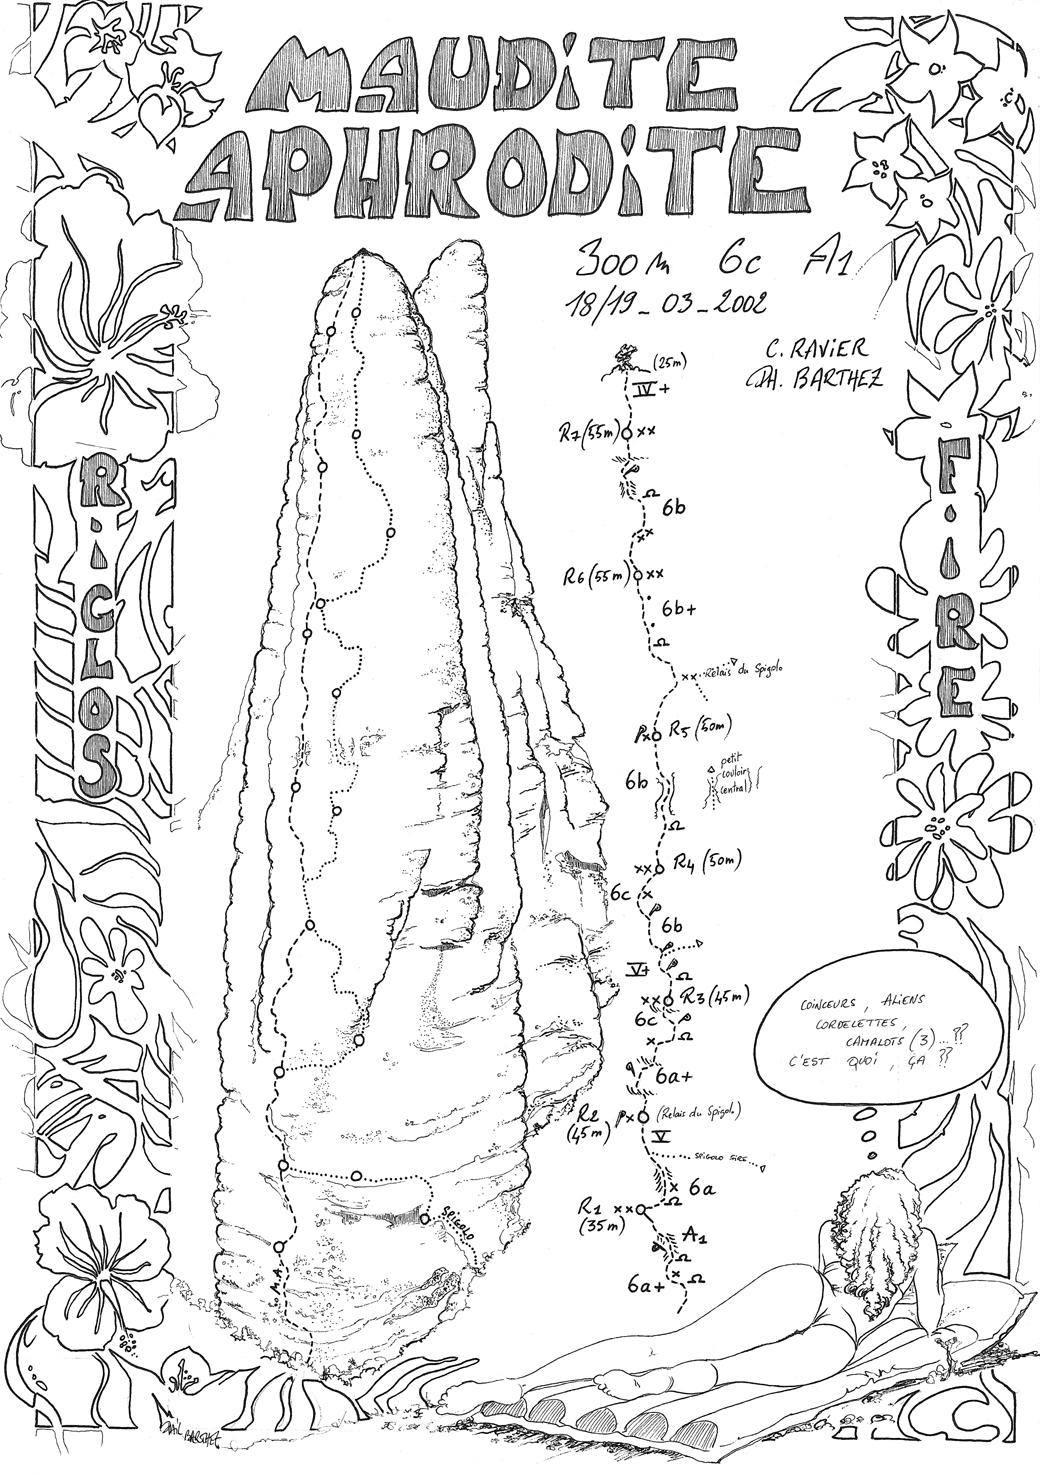 MAUDITE
APHRODITE
300 m 6c A1
18/19_03_2002
C. RAVIER
PH. BARTHEZ
RIGLOS
FIRE
(25m)
IV+
R7 (55m) xx
6b
R6 (55m) xx
6b+
xx Relais du Spigolo
Px R5 (50m)
6b
petit
couloir
central
xx R4 (50m)
6c x
6b
V+
xx R3 (45m)
6c
x
6a+
R2 Px (Relais du Spigolo)
(45m)
V
SPIGOLO FIRE
x 6a
R1 xx
(35m)
A1
x
6a+
SPIGOLO
M.A.
COINCEURS, ALIENS
CORDELETTES,
CAMALOTS (3)...??
C'EST QUOI, ÇA ??
BARTHEZ